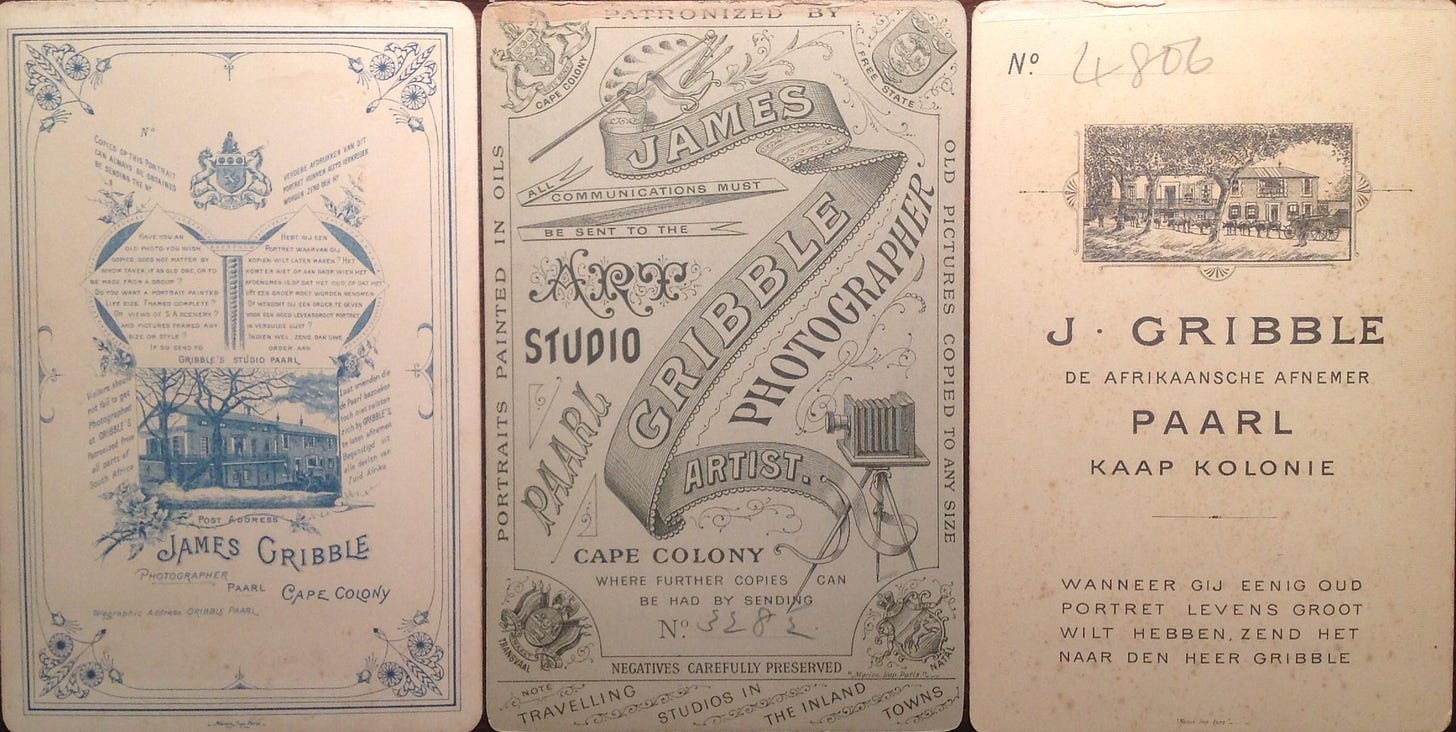 Nº
COPIES OF THIS PORTRAIT
CAN ALWAYS BE OBTAINED
BE SENDING THE Nº
VERDERE AFDRUKKEN VAN DIT
PORTRET KUNNEN ALTYD VERKREGEN
WORDEN ZEND DEN Nº
HAVE YOU AN
OLD PHOTO YOU WISH
COPIED, DOES NOT MATTER BY
WHOM TAKEN, IF AN OLD ONE, OR TO
BE MADE FROM A GROUP ?
DO YOU WANT A PORTRAIT PAINTED
LIFE SIZE. FRAMED COMPLETE ?
OR VIEWS OF S.A SCENERY ?
AND PICTURES FRAMED ANY
SIZE OR STYLE ?
IF SO SEND TO
HEBT GIJ EEN
PORTRET WAARVAN GIJ
KOPIEN WILT LATEN MAKEN ? HET
KOMT ER NIET OP AAN DOOR WIEN HET
AFGENOMEN IS OF DAT HET OUD, OF DAT HET
UIT EEN GROEP MOET WORDEN GENOMEN
OF WENSCHT GIJ EEN ORDER TE GEVEN
VOOR EEN GOED LEVENSGROOT PORTRET
IN VERGULDE LIJST ?
INDIEN WEL, ZEND DAN UWE
ORDER AAN
GRIBBLE'S STUDIO PAARL
Visitors should
not fail to get
Photographed
at GRIBBLE'S
Patronized from
all parts of
South Africa
Laat vrienden die
de Paarl bezoeken
toch niet nalaten
zich by GRIBBLE'S
te laten afnemen
Begunstigd uit
alle deelen van
Zuid Afrika
POST ADDRESS
JAMES GRIBBLE
PHOTOGRAPHER
PAARL
CAPE COLONY
Telegraphic Address GRIBBLE PAARL
PATRONIZED BY
CAPE COLONY
FREE STATE
JAMES
GRIBBLE
PHOTOGRAPHER
ARTIST.
ALL COMMUNICATIONS MUST
BE SENT TO THE
ART
STUDIO
PAARL
CAPE COLONY
WHERE FURTHER COPIES CAN
BE HAD BY SENDING
Nº 3282.
TRANSVAAL
NATAL
NEGATIVES CAREFULLY PRESERVED
"Marion Imp Paris"
PORTRAITS PAINTED IN OILS
OLD PICTURES COPIED TO ANY SIZE
NOTE
TRAVELLING STUDIOS IN THE INLAND TOWNS
Nº 4806
J · GRIBBLE
DE AFRIKAANSCHE AFNEMER
PAARL
KAAP KOLONIE
WANNEER GIJ EENIG OUD
PORTRET LEVENS GROOT
WILT HEBBEN, ZEND HET
NAAR DEN HEER GRIBBLE